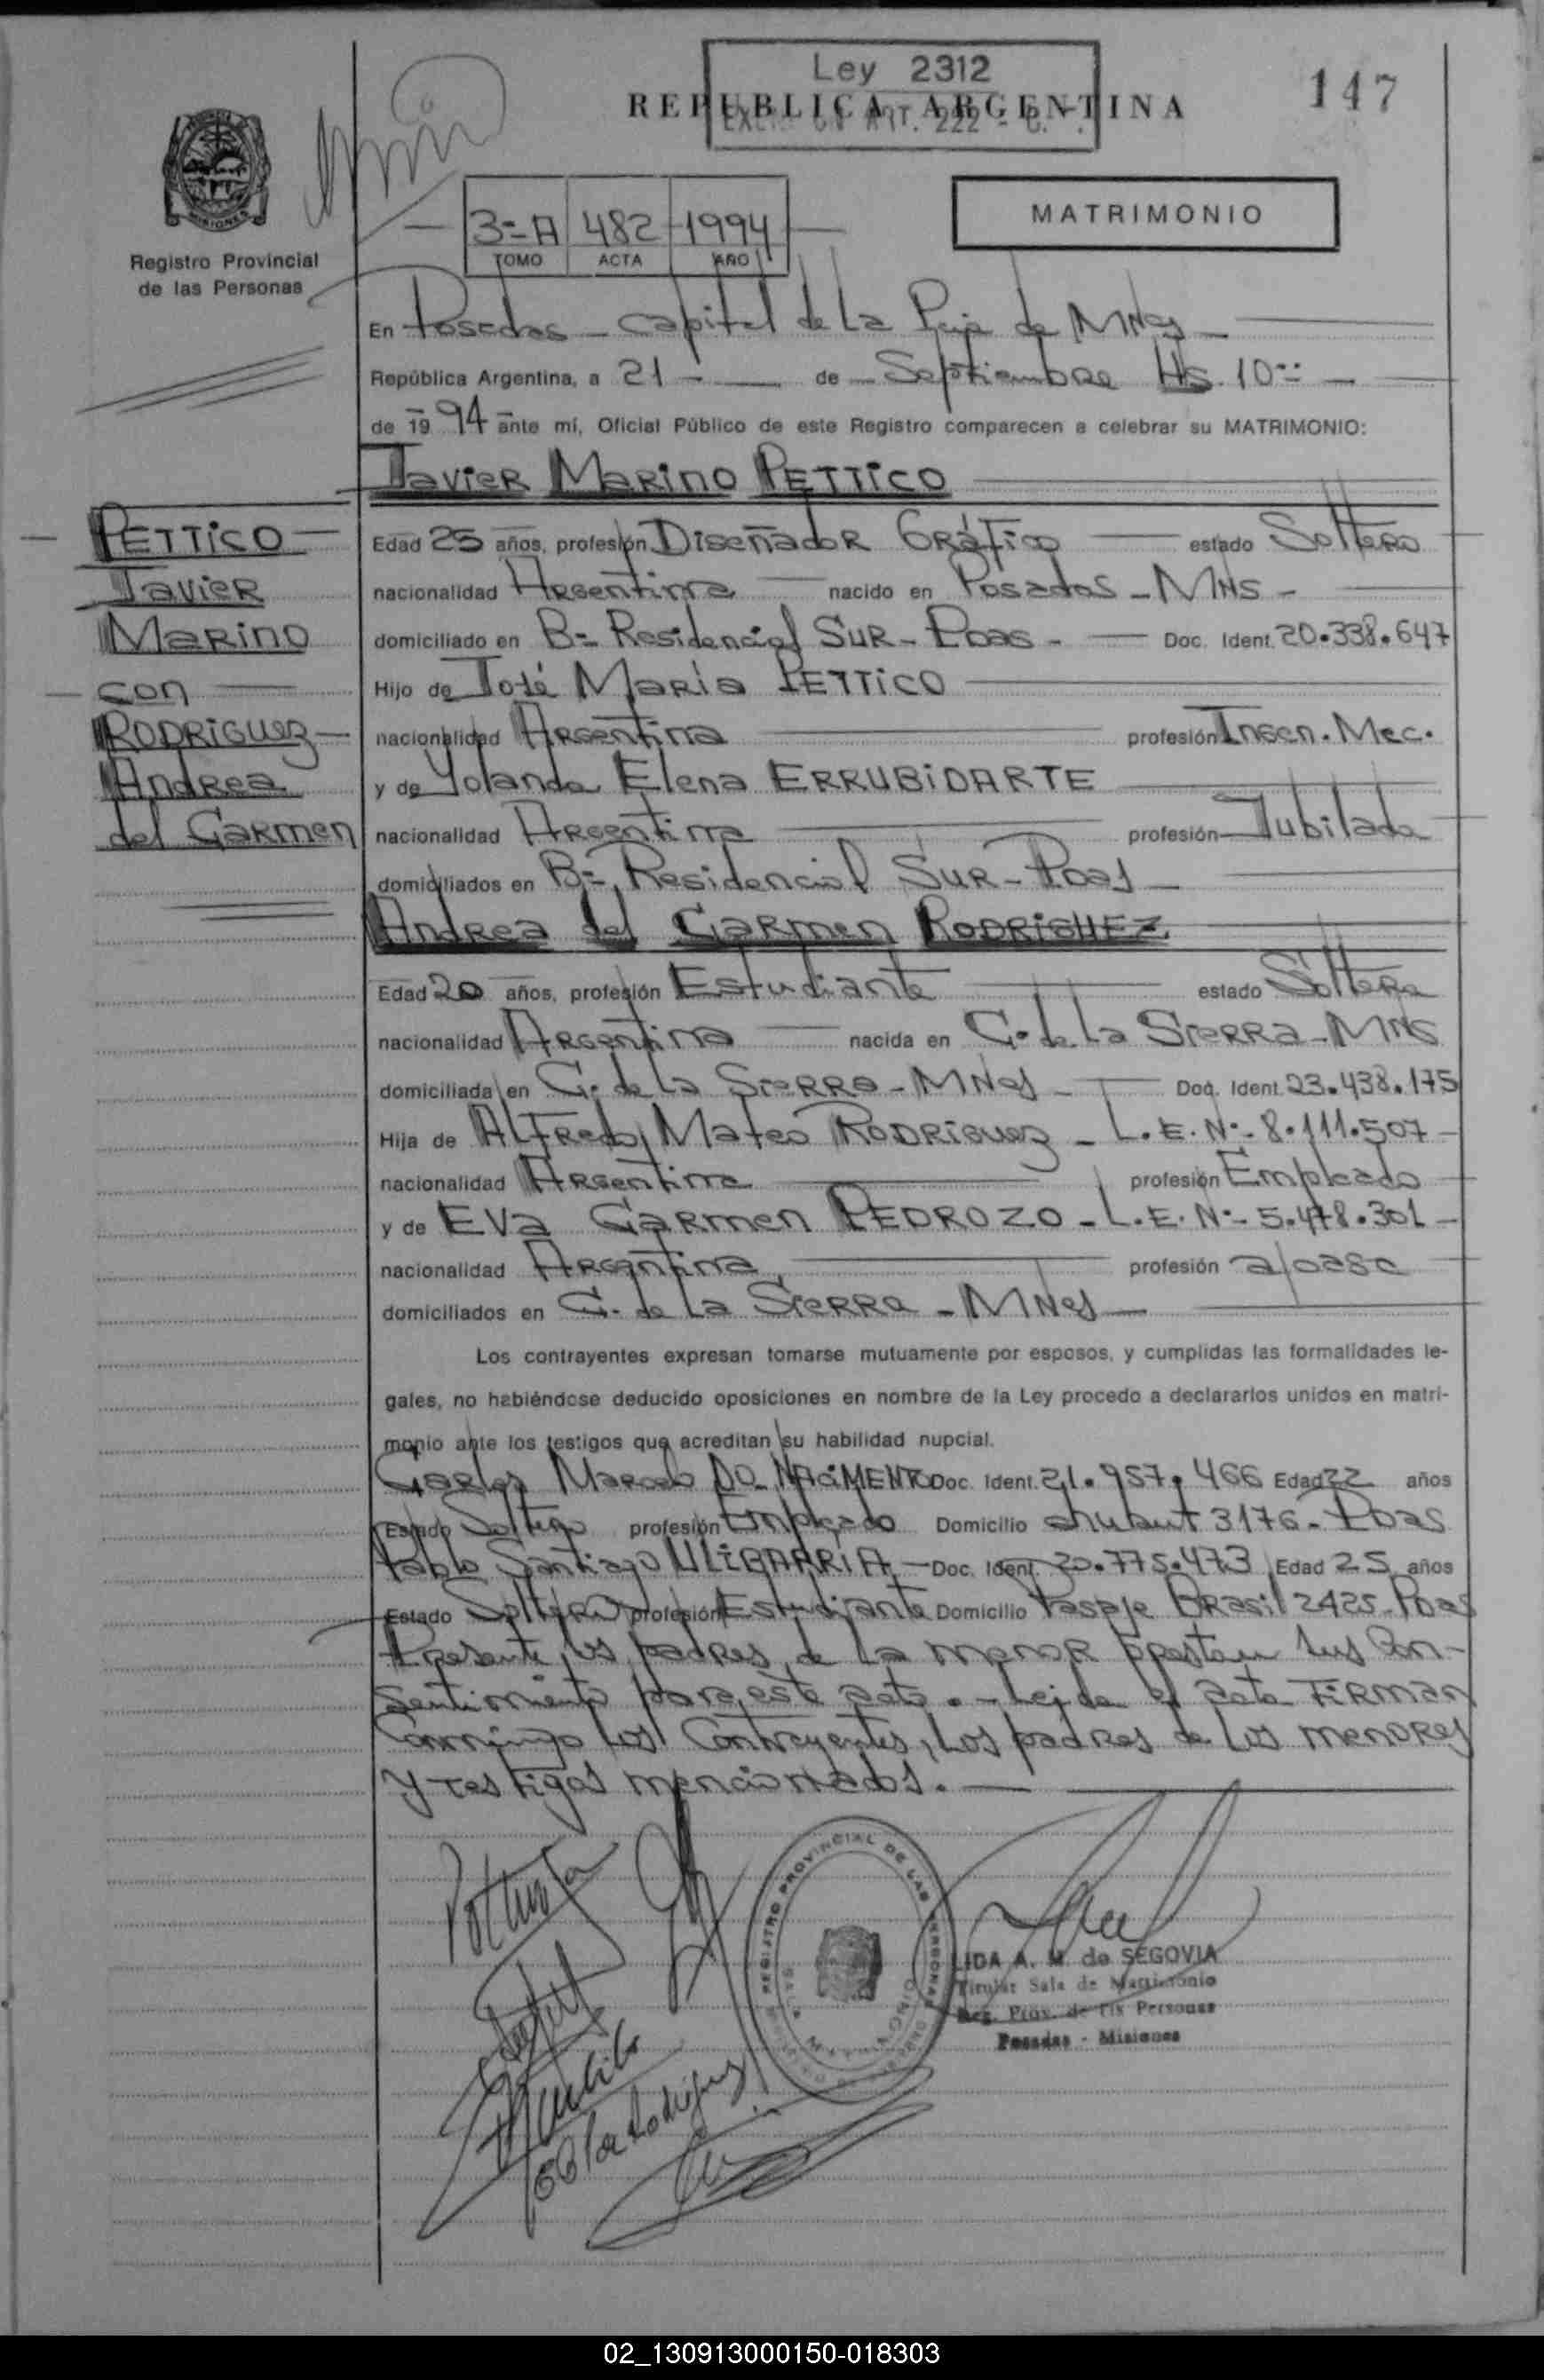 Ley 2312
147
REPUBLICA ARGENTINA
ART. 222
MISIONES
Registro Provincial
de las Personas
3=A 482 1994
TOMO ACTA AÑO
MATRIMONIO
En Posadas - Capital de La Pcia de MNes -
República Argentina, a 21 - de Septiembre Hs. 10
de 19 94 ante mí, Oficial Público de este Registro comparecen a celebrar su MATRIMONIO:
Javier Marino PETTICO
PETTICO
Javier
Marino
con
RODRIGUEZ
Andrea
del Carmen
Edad 25 años, profesión Diseñador Gráfico estado Soltero
nacionalidad Argentina nacido en Posadas - MNS -
domiciliado en B= Residencial SUR - Pdas - Doc. Ident. 20.338.647
Hijo de José María PETTICO
nacionalidad Argentina profesión Ingen. Mec.
y de Yolanda Elena ERRUBIDARTE
nacionalidad Argentina profesión Jubilada
domiciliados en B=. Residencial SUR - Pdas -
Andrea del Carmen RODRIGUEZ
Edad 20 años, profesión Estudiante estado Soltera
nacionalidad Argentina nacida en C. de La Sierra - MNS
domiciliada en C. de La Sierra - MNes - Doc. Ident. 23.438.175
Hija de Alfredo Mateo RODRIGUEZ - L.E. Nº - 8.111.507 -
nacionalidad Argentina profesión Empleado
y de Eva Carmen PEDROZO - L.E. Nº - 5.478.301 -
nacionalidad Argentina profesión
domiciliados en C. de La Sierra - MNes
Los contrayentes expresan tomarse mutuamente por esposos, y cumplidas las formalidades le-
gales, no habiéndose deducido oposiciones en nombre de la Ley procedo a declararlos unidos en matri-
monio ante los testigos que acreditan su habilidad nupcial.
Carlos Marcelo DO NACIMENTO Doc. Ident. 21.957.466 Edad 22 años
Estado Soltero profesión Empleado Domicilio Chubut 3176 - Pdas
Pablo Santiago ULIBARRIA - Doc. Ident. 20.775.473 Edad 25 años
Estado Soltero profesión Estudiante Domicilio Pasaje Brasil 2425 - Pdas
Presente los padres de la menor prestan sus Con-
sentimiento para este acto. - Leida el acta FIRMAN
Conmigo los Contrayentes, Los padres de los menores
y testigos mencionados.
REGISTRO PROVINCIAL DE LAS PERSONAS
LIDA A. M. de SEGOVIA
Titular Sala de Matrimonio
Reg. Prov. de las Personas
Posadas - Misiones
02_130913000150-018303